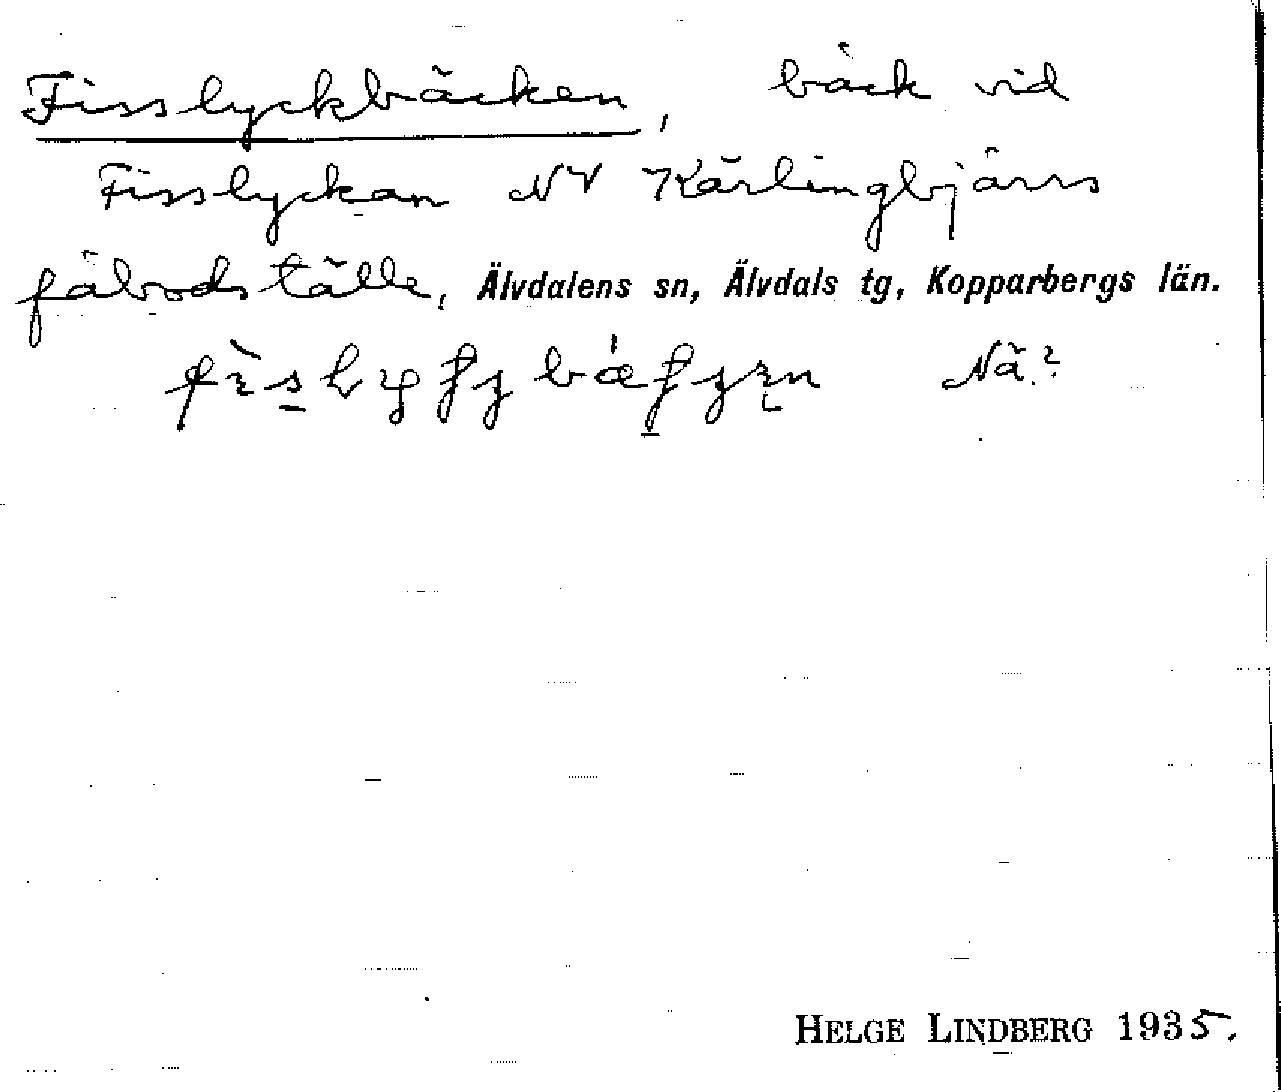 Fisslyckbäcken, bäck vid
Fisslyckan NV Kärlingbjärs
fäbodställe, Älvdalens sn, Älvdals tg, Kopparbergs län.
Nä?
HELGE LINDBERG 1935.